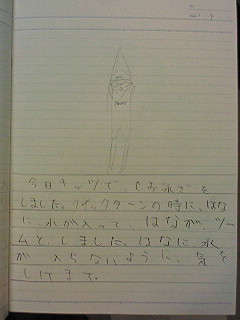 今日キッツで およぎを
しました。クイックターンの時に、はな
に、水が入って、はなが、ツー
ムと、しました。はなに水
が 入らないように、気を
しけます。